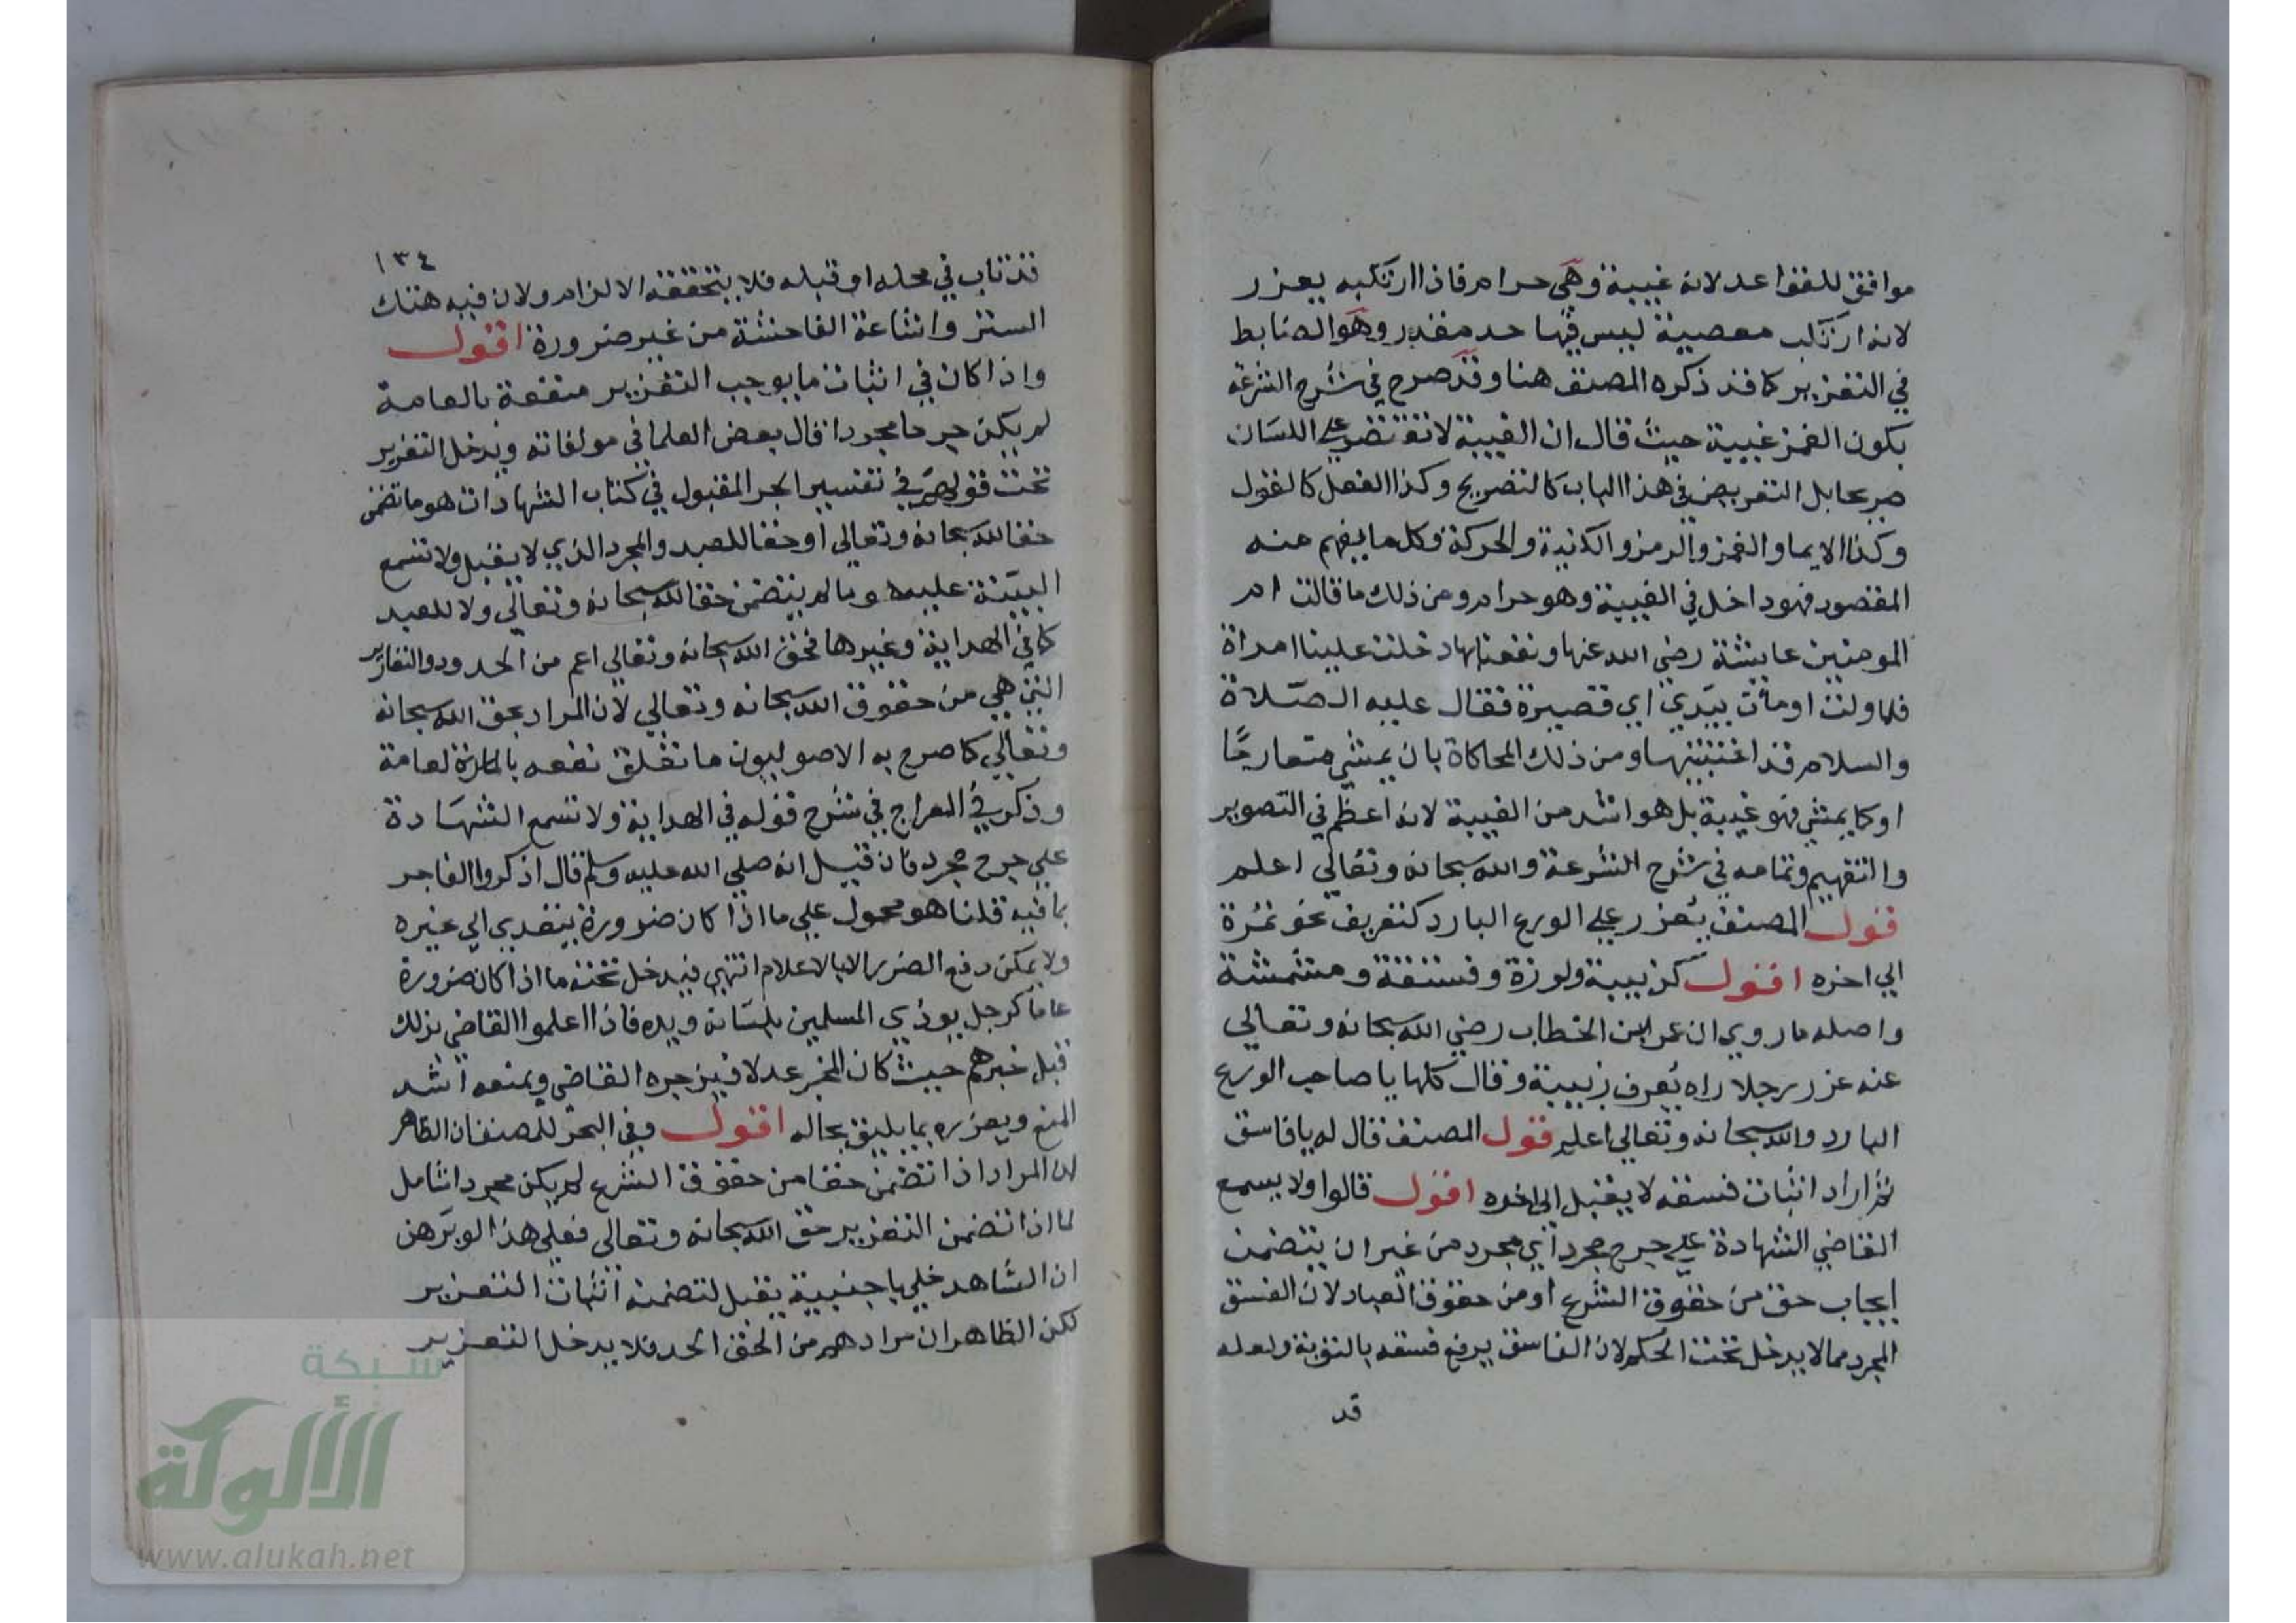 موافق للقواعد لانه غيبة وهي حرام فاذا ارتكبه يعزر
لانه ارتكب معصية ليس فيها حد مقدر وهو الضابط
في التعزير كما قد ذكره المصنف هنا وقد صرح في شرح الشرعة
بكون الغمز غيبة حيث قال ان الغيبة لا تقتضي على اللسان
صريحا بل التعريض في هذا الباب كالتصريح وكذا الفعل كالقول
وكذا الايما والغمز والرمز والكنية والحركة وكل ما يفهم منه
المقصود فهو داخل في الغيبة وهو حرام ومن ذلك ما قالت ام
المومنين عايشة رضي الله عنها ونفعنا بها دخلت علينا امراة
فلما ولت اومأت بيدي اي قصيرة فقال عليه الصلاة
والسلام قد اغتبتيها ومن ذلك المحاكاة بان يمشي متعارجا
او كما يمشي فهو غيبة بل هو اشد من الغيبة لانه اعظم في التصوير
والتفهيم وتمامه في شرح الشرعة والله سبحانه وتعالى اعلم
قول المصنف يعزر على الورع البارد كتعريف نحو تمرة
الي اخره اقول كزبيبة ولوزة وفستقة ومشمشة
واصله ما روي ان عمر ابن الخطاب رضي الله سبحانه وتعالي
عنه عزر رجلا راه يعرف زبيبة وقال كلها يا صاحب الورع
البارد والله سبحانه وتعالي اعلم قول المصنف قال له يا فاسق
ثم اراد اثبات فسقه لا يقبل الي اخره اقول قالوا ولا يسمع
القاضي الشهادة على جرح مجرد اي مجرد من غير ان يتضمن
ايجاب حق من حقوق الشرع او من حقوق العباد لان الفسق
المجرد مما لا يدخل تحت الحكم لان الفاسق يرفع فسقه بالتوبة ولعله
قد
١٣٤
قد تاب في محله او قبله فلا يتحققه الالزام ولان فيه هتك
الستر واشاعة الفاحشة من غير ضرورة اقول
واذا كان في اثبات ما يوجب التعزير منفعة بالعامة
لم يكن جرحا مجردا قال بعض العلما في مولفاته ويدخل التعزير
تحت قولهم في تفسير الجر المقبول في كتاب الشهادات هو ما تضمن
حقا لله سبحانه وتعالي او حقا للعبد والمجرد الذي لا يقبل ولا تسمع
البينة عليه هو ما لم يتضمن حقا لله سبحانه وتعالي ولا للعبد
كما في الهداية وغيرها فحق الله سبحانه وتعالي اعم من الحدود والتعازير
التي هي من حقوق الله سبحانه وتعالي لان المراد بحق الله سبحانه
وتعالي كما صرح به الاصوليون ما تعلق نفعه العامة
وذكر في المعراج في شرح قوله في الهداية ولا تسمع الشهادة
علي جرح مجرد فان قيل انه صلي الله عليه وسلم قال اذكروا الفاجر
بما فيه قلنا هو محمول علي ما اذا كان ضرورة يتعدي الي غيره
ولا يمكن دفع الضرر الا بالاعلام انتهي فيدخل تحته ما اذا كان ضرورة
عاما كرجل يوذي المسلمين بلسانه ويده فاذا اعلموا القاضي بذلك
قبل خبرهم حيث كان المخبر عدلا فيزجره القاضي ويمنعه اشد
المنع ويعزره بما يليق بحاله اقول وفي البحر للمصنف ان الظاهر
ان المراد اذا تضمن حقا من حقوق الشرع لم يكن مجردا شامل
لما اذا تضمن التعزير حق الله سبحانه وتعالي فعلي هذا لو برهن
ان الشاهد خلي باجنبية يقبل لتضمنه اثبات التعزير
لكن الظاهر ان مرادهم من الحق الحد فلا يدخل التعزير
شبكة
الألوكة
www.alukah.net